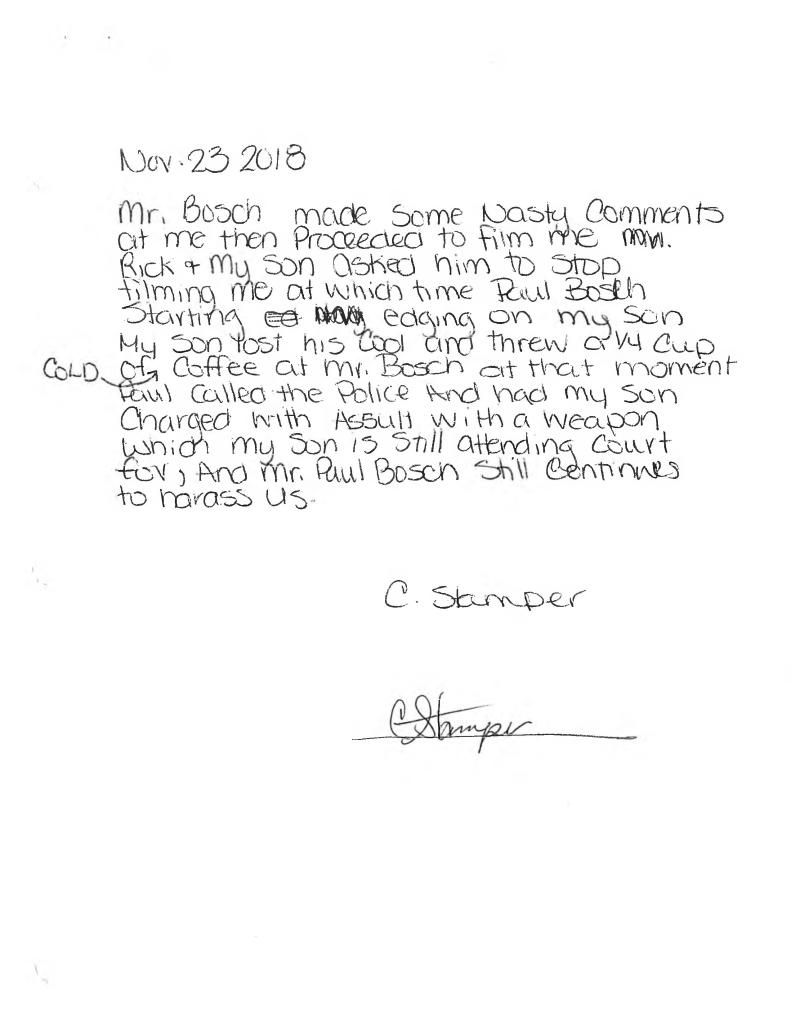 Nov. 23 2018
Mr. Bosch made Some Nasty Comments
at me then Proceeded to film me
Rick & My Son asked him to Stop
filming me at which time Paul Bosch
Starting edging on my Son
My Son lost his Cool and threw a 1/4 Cup
COLD of Coffee at Mr. Bosch at that moment
Paul Called the Police And had my Son
Charged with Assult with a weapon
which my Son is Still attending Court
for, And Mr. Paul Bosch Still Continues
to harass us.
C. Stamper
C Stamper